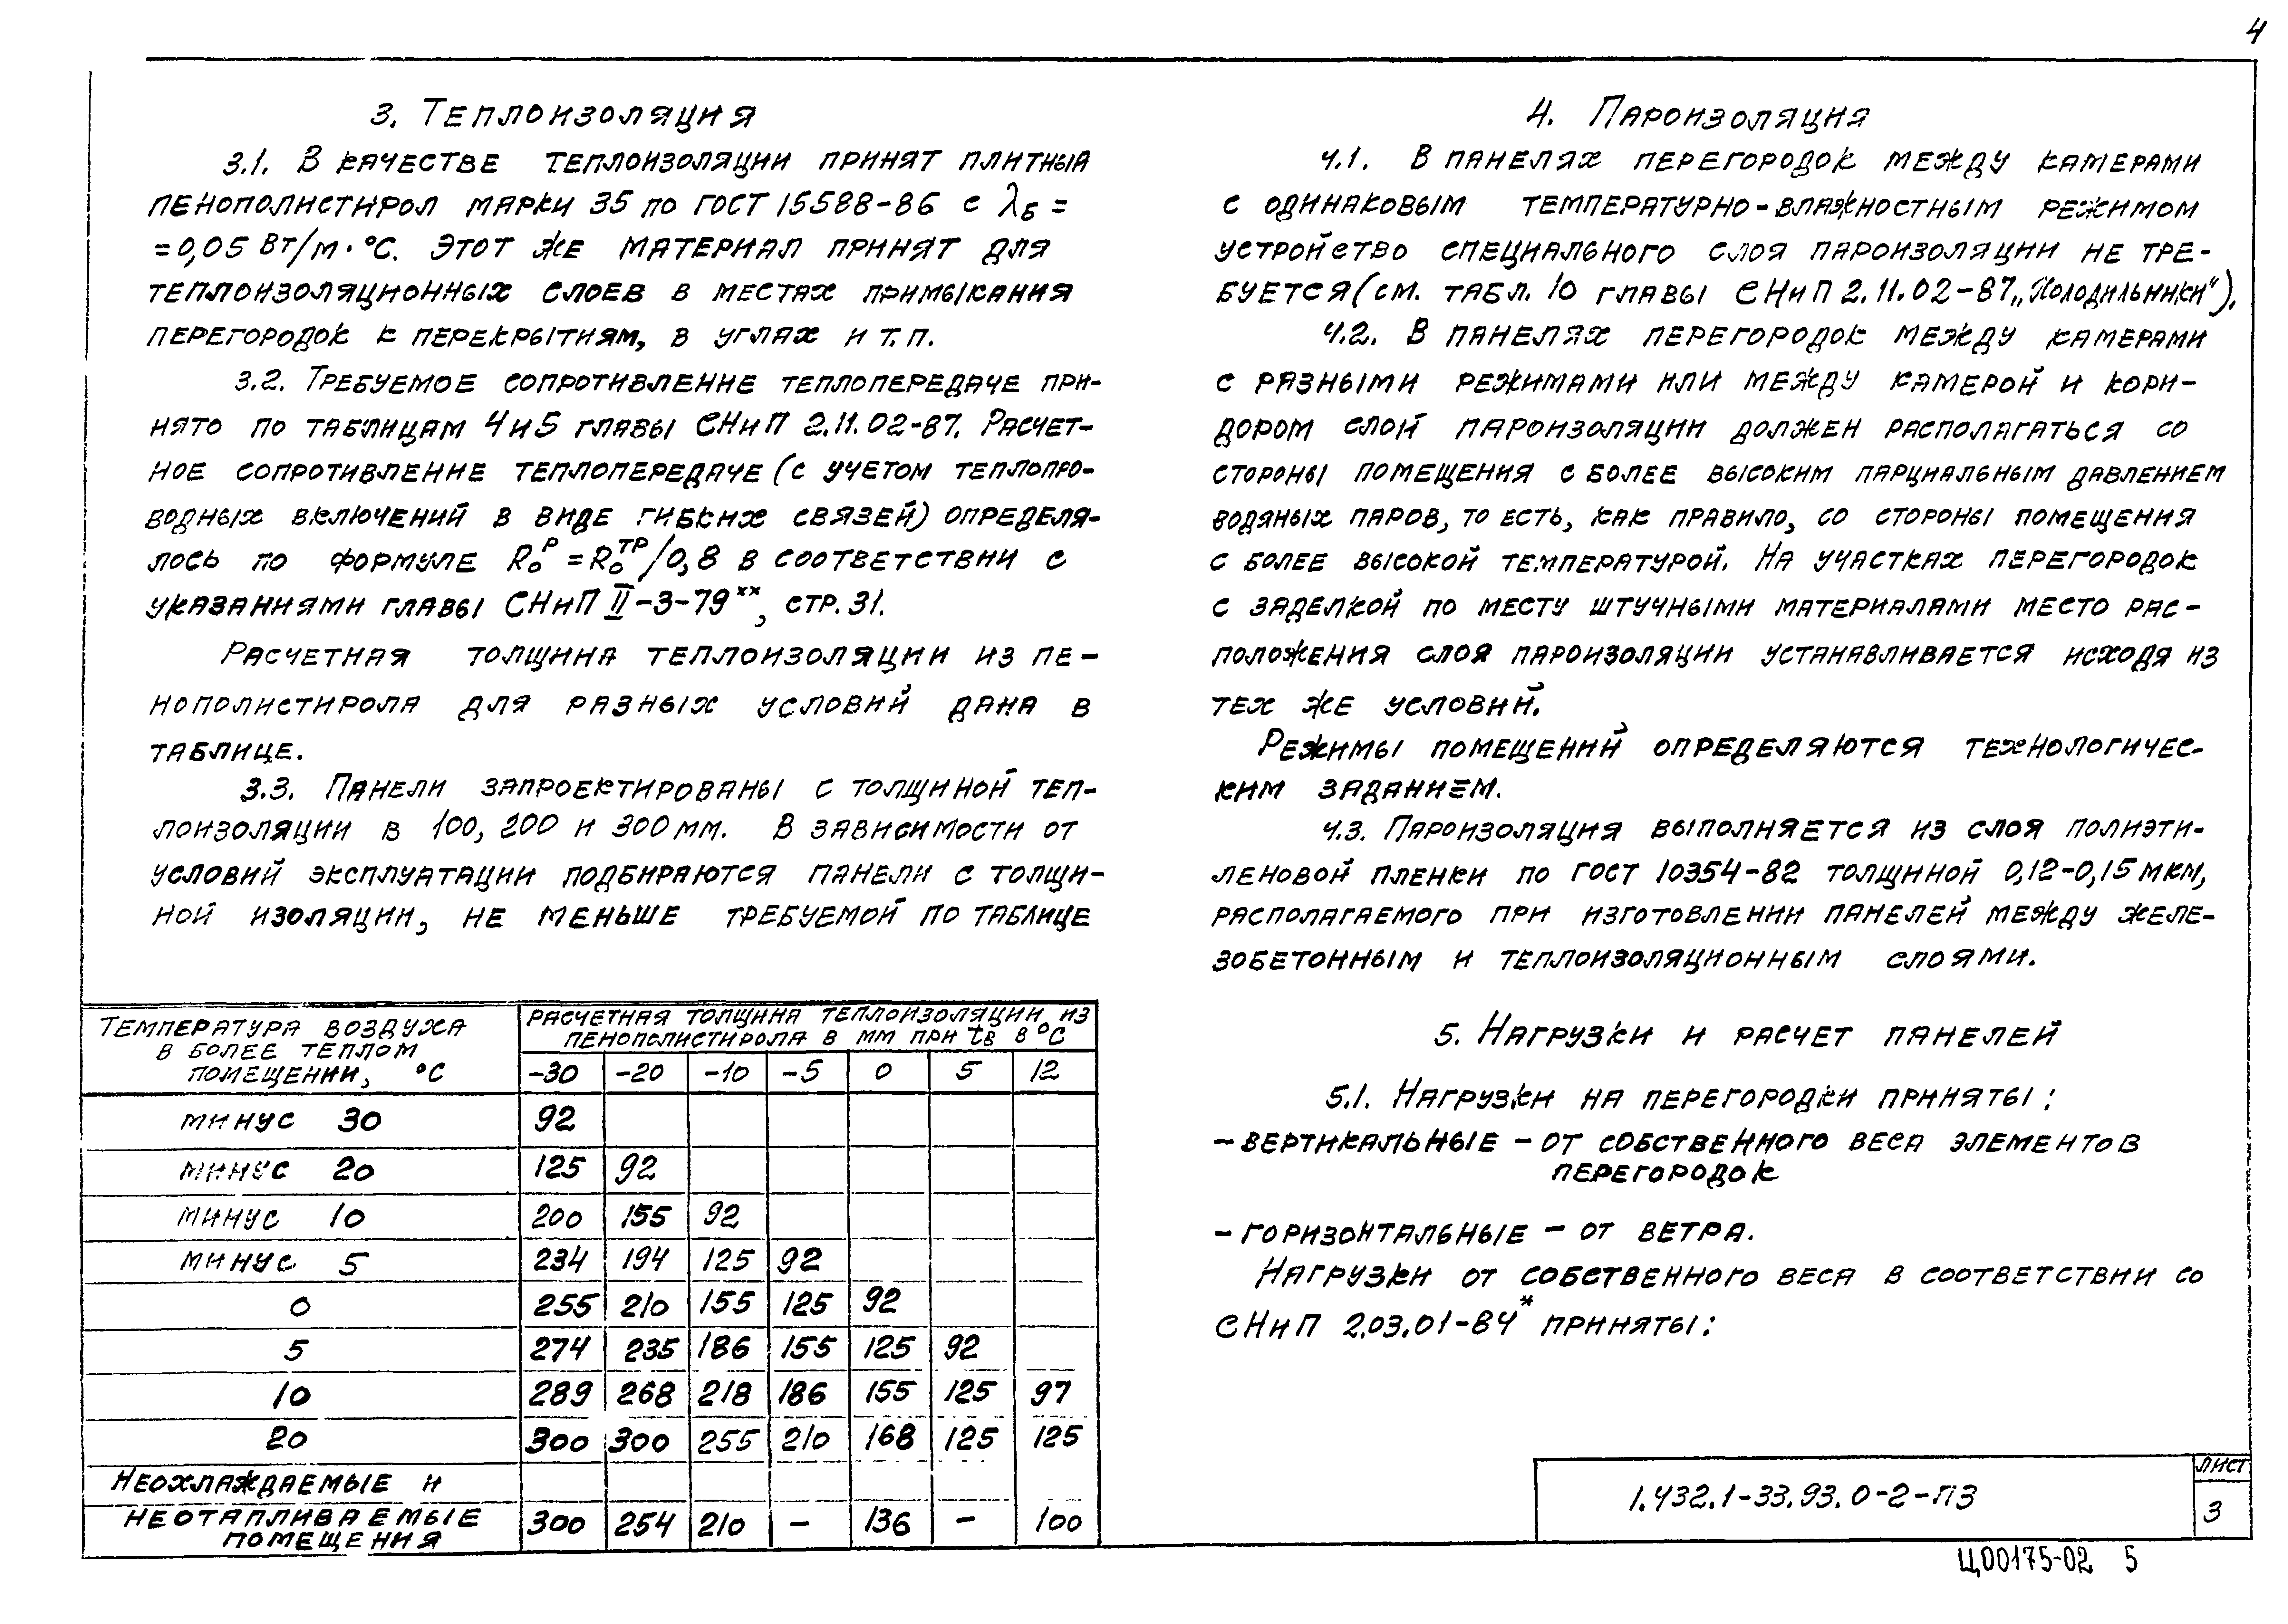 4
3. Теплоизоляция
3.1. В качестве теплоизоляции принят плитный
пенополистирол марки 35 по ГОСТ 15588-86 с λБ =
= 0,05 Вт/м·°С. Этот же материал принят для
теплоизоляционных слоев в местах примыкания
перегородок к перекрытиям, в углах и т.п.
3.2. Требуемое сопротивление теплопередаче при-
нято по таблицам 4 и 5 главы СНиП 2.11.02-87. Расчет-
ное сопротивление теплопередаче (с учетом теплопро-
водных включений в виде гибких связей) определя-
лось по формуле Rоᴾ = Rоᵀᴾ/0,8 в соответствии с
указаниями главы СНиП II-3-79**, стр. 31.
Расчетная толщина теплоизоляции из пе-
нополистирола для разных условий дана в
таблице.
3.3. Панели запроектированы с толщиной теп-
лоизоляции в 100, 200 и 300 мм. В зависимости от
условий эксплуатации подбираются панели с толщи-
ной изоляции, не меньше требуемой по таблице
Температура воздуха
в более теплом
помещении, °С
Расчетная толщина теплоизоляции из
пенополистирола в мм при tв в °С
-30 -20 -10 -5 0 5 12
минус 30 92
минус 20 125 92
минус 10 200 155 92
минус 5 234 194 125 92
0 255 210 155 125 92
5 274 235 186 155 125 92
10 289 268 218 186 155 125 97
20 300 300 255 210 168 125 125
Неохлаждаемые и
неотапливаемые
помещения 300 254 210 – 136 – 100
4. Пароизоляция
4.1. В панелях перегородок между камерами
с одинаковым температурно-влажностным режимом
устройство специального слоя пароизоляции не тре-
буется (см. табл. 10 главы СНиП 2.11.02-87 „Холодильники").
4.2. В панелях перегородок между камерами
с разными режимами или между камерой и кори-
дором слой пароизоляции должен располагаться со
стороны помещения с более высоким парциальным давлением
водяных паров, то есть, как правило, со стороны помещения
с более высокой температурой. На участках перегородок
с заделкой по месту штучными материалами место рас-
положения слоя пароизоляции устанавливается исходя из
тех же условий.
Режимы помещений определяются технологичес-
ким заданием.
4.3. Пароизоляция выполняется из слоя полиэти-
леновой пленки по ГОСТ 10354-82 толщиной 0,12-0,15 мкм,
располагаемого при изготовлении панелей между желе-
зобетонным и теплоизоляционным слоями.
5. Нагрузки и расчет панелей
5.1. Нагрузки на перегородки приняты:
- вертикальные - от собственного веса элементов
перегородок
- горизонтальные - от ветра.
Нагрузки от собственного веса в соответствии со
СНиП 2.03.01-84* приняты:
1.432.1-33.93.0-2-ПЗ
лист
3
Ц00175-02 5